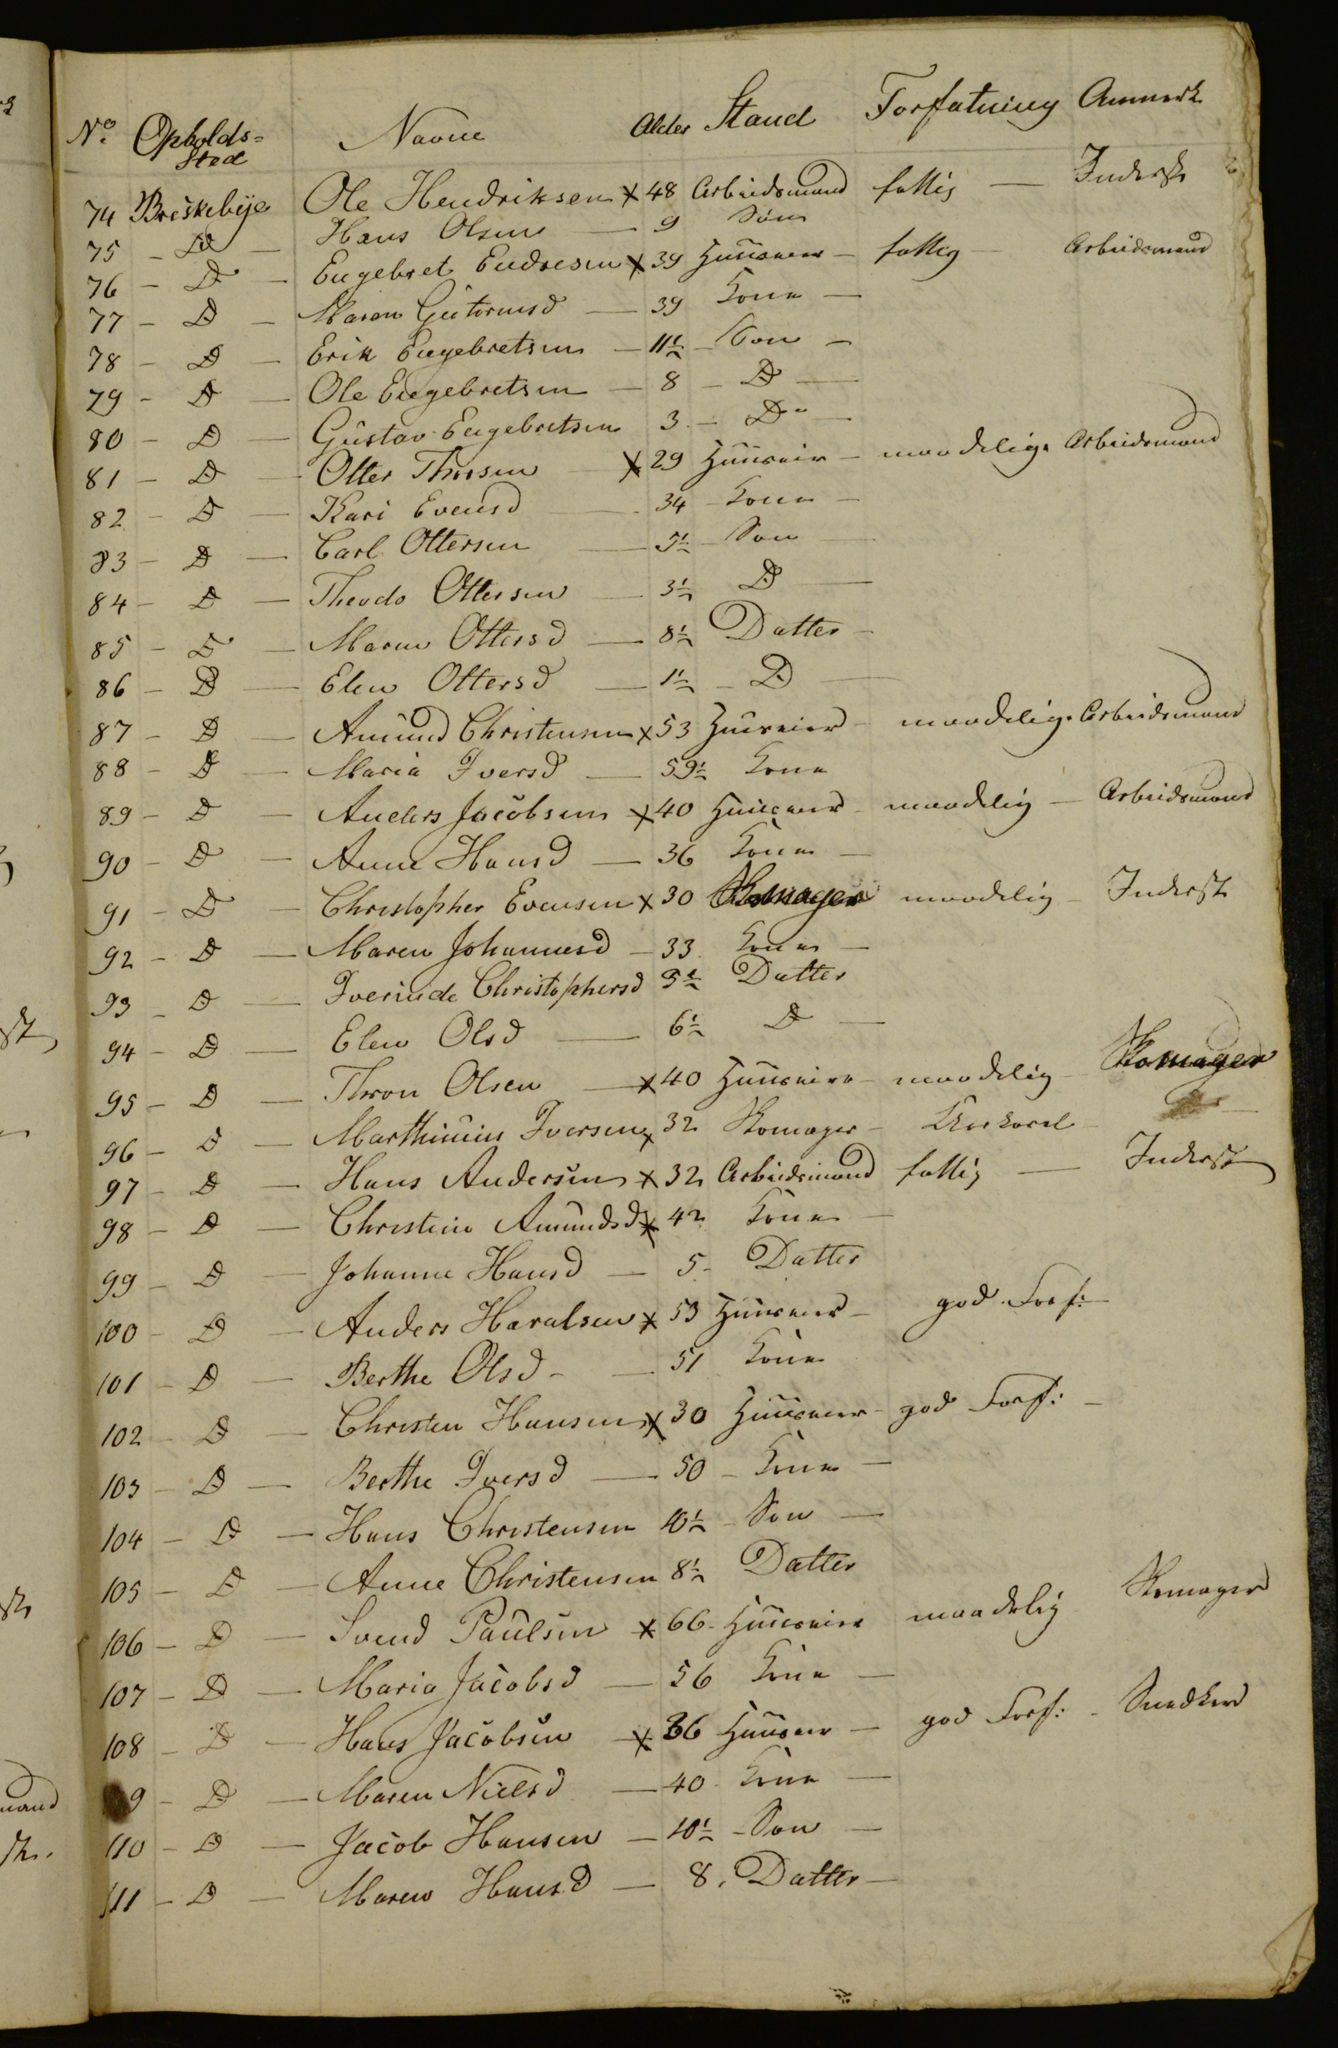 No. Opholds= Sted Navne Alder Stand Forfatning Anmerk
74 Briskebye Ole Hendriksen x 48 Arbeidsmand fattig — Inderst
75 – D — Hans Olsen — 9 Søn
76 – D — Engebret Endresen x 39 Huuseier – fattig – Arbeidsmand
77 – D — Maren Gutormsd — 39 Kone —
78 – D — Erik Engebretsen — 11½ – Søn –
79 – D — Ole Engebretsen — 8 – D —
80 – D — Gustav Engebretsen 3 – Do —
81 – D — Otter Thorsen x 29 Huuseier – maadelig Arbeidsmand
82 – D — Kari Evensd — 34 – Kone –
83 – D — Carl Ottersen — 5½ – Søn —
84 – D — Theodo Ottersen — 3½ D —
85 – D — Maren Ottersd — 8½ Datter –
86 – D — Elen Ottersd — 1½ – D —
87 – D — Amund Christensen x 53 Huuseier – maadelig Arbeidsmand
88 – D — Maria Iversd — 59½ Kone
89 – D — Anders Jacobsen x 40 Huuseier – maadelig – Arbeidsmand
90 – D — Anne Hansd — 36 Kone —
91 – D — Christopher Evensen x 30 Skomager maadelig – Inderst
92 – D — Maren Johannesd – 33 Kone —
93 – D — Iverinde Christophersd 3½ Datter
94 – D — Elen Olsd — 6½ D —
95 – D — Thron Olsen — x 40 Huuseier – maadelig – Skomager
96 – D — Marthinius Iversen x 32 Skomager –
97 – D — Hans Andersen x 32 Arbeidsmand fattig — Inderst
98 – D — Christine Amundsd x 42 Kone —
99 – D — Johanne Hansd — 5 – Datter
100 – D — Anders Haralsen x 53 Huuseier – god Forf: —
101 – D — Berthe Olsd – — 51 Kone
102 – D — Christen Hansen x 30 Huuseier – god Forf: –
103 – D — Berthe Iversd — 50 – Kone —
104 – D — Hans Christensen 10½ – Søn —
105 – D — Anne Christensen 8½ Datter
106 – D — Svend Paulsen x 66 – Huuseier maadelig Skomager
107 – D — Maria Jacobsd — 56 Kone —
108 – D — Hans Jacobsen x 36 Huuseier — god Forf: – Snedker
9 – D — Maren Nielsd — 40 – Kone —
110 – D — Jacob Hansen — 10½ – Søn —
111 – D — Maren Hansd — 8. Datter —